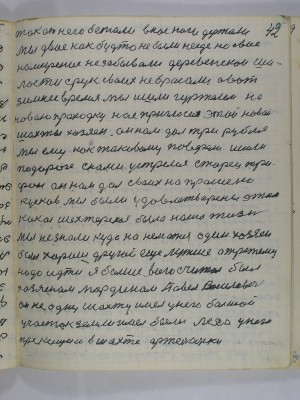 42
так от него бежали в кое ноги держали
мы двое как будто не были нигде но свое
намерение не забывали деревенской ша-
лости с рук своих не бросали а вот
зимнее время мы шли гуртаем на
новою проходку нас пригласил этой новой
шахты хозяин, он нам дал три рубля
мы ему как таковому поверили шли
по дороге с нами устрелся старец три-
он нам дал своих на прошено
кусков мы были удовлетворены этим
какая шахтерская была наша жизнь
мы не знали куда на неможна один хозяин
был хорош другой еще лучше а третему
надо идти я больше всего был
хозяином Мардином Павел Васильевич
он не одну шахту имел у него большой
участок земли имел были леса у него
приказчик в шахте артельщики